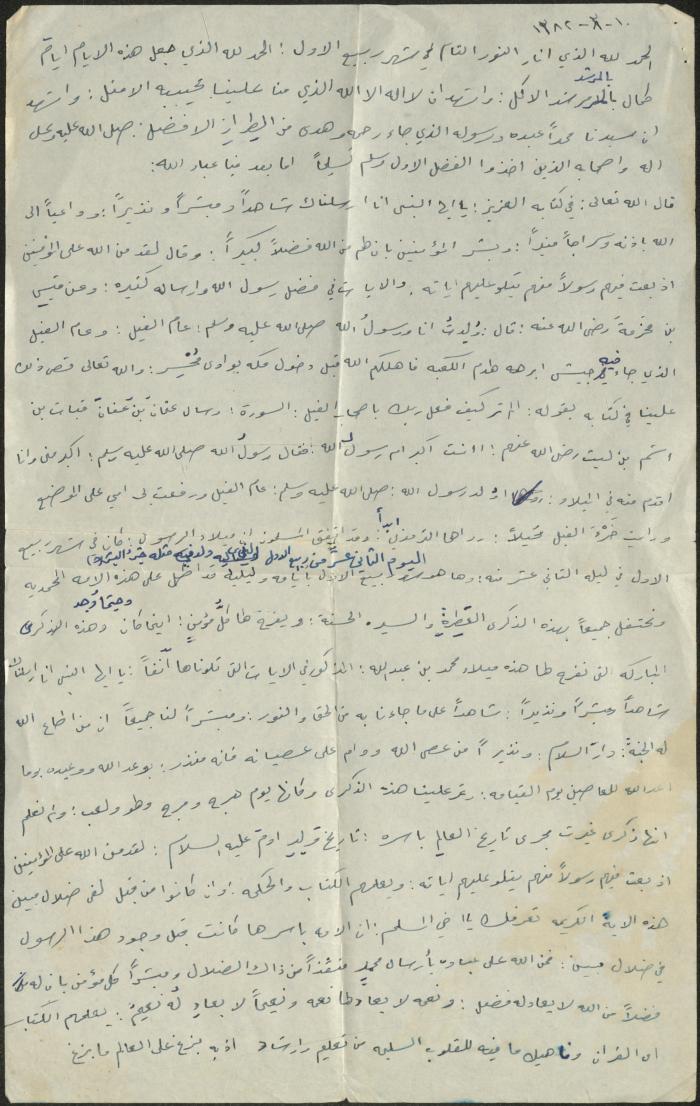 ١٠-٣-١٣٨٢
الحمد لله الذي انار النور التام في شهر ربيع الاول : الحمد لله الذي جعل هذه الايام ايام
بالمرشد
كمال الاكمل : واشهد ان لا اله الا الله الذي منا علينا بحبيبه الامثل : واشهد
ان سيدنا محمداً عبده ورسوله الذي جاء رحمه وهدى من الطراز الافضل : صلى الله عليه وعلى
اله واصحابه الذين اخذوا الفضل الاول وسلم تسليماً اما بعد فيا عباد الله :
قال الله تعالى : في كتابه العزيز : يا ايها النبي انا ارسلناك شاهداً ومبشراً ونذيراً : وداعياً الى
الله باذنه وسراجاً منيراً : وبشر المؤمنين بان لهم من الله فضلاً كبيراً : وقال لقد من الله على المؤمنين
اذ بعث فيهم رسولاً منهم يتلو عليهم اياته . والايات في فضل رسول الله وارساله كثيره : وعن قيس
بن مخرمة رضي الله عنه : قال : وُلِدتُ انا ورسولُ الله صلى الله عليه وسلم : عام الفيل : وعام الفيل
فيه
الذي جاء جيش ابرهه لهدم الكعبه فاهلكهم الله قبل دخول مكه بوادي مُحسِّر : والله تعالى قص ذلك
علينا في كتابه بقوله : الم تر كيف فعل ربك باصحاب الفيل : السورة : وسال عثمان بن عفان قباث بن
اشيم بن ليث رضي الله عنهم : اانت اكبر ام رسولُ الله : فقال رسولُ الله صلى الله عليه وسلم : اكبر مني وانا
اقدم منه في الميلاد : ولد رسول الله : صلى الله عليه وسلم : عام الفيل ورفعت بي امي على الموضع
ورايت خَزْقَ الفيل مُحيلاً : رواها الترمذي ايضاً : وقد اتفق المسلمون ان ميلاد الرسول : كان في شهر ربيع
اليوم الثاني عشر من ربيع الاول ولد فيه
الاول في ليله الثاني عشر منه : وها هو شهر ربيع الاول بايامه ولياليه قد اطل على هذه الامه المحمديه
وحيثما وُجد
ونحتفل جميعاً بهذه الذكرى العطرة والسيره الحسنة : ويفرح لها كلُّ مؤمنٍ : اينما كان وهذه الذكرى
المباركه التي نفرح لها هذه ميلاد محمد بن عبد الله : المذكور في الايات التي تلوناها آنفاً : يا ايها النبي انا ارسلناك
شاهداً ومبشراً ونذيراً : شاهداً على ما جاءنا به من الحق والنور : ومبشراً لنا جميعاً ان من اطاع الله
له الجنةُ : دارَ السلام : ونذيراً من عصى الله ودام على عصيانه فانه منذر : بوعد الله ووعيده يوما
اعد الله للعاصين يوم القيامه : وتمر علينا هذه الذكرى وكانها يوم هرج ومرج ولهو ولعب : ولم نعلم
انها ذكرى غيرت مجرى تاريخ العالم باسره : تاريخ ادم عليه السلام : لقد من الله على المؤمنين
اذ بعث فيهم رسولاً منهم يتلو عليهم اياته : ويعلمهم الكتاب والحكمه : وان كانوا من قبل لفي ضلال مبين
هذه الايه الكريمه تعرفك يا اخي المسلم : ان الامه باسرها كانت قبل وجود هذا الرسول
في ضلال مبين : فمن الله على عباده بأرسال محمدٍ منقذاً من ذاك الضلال ومبشراً كل مؤمن بان له
فضلاً من الله لا يعادله فضل : ونعمه لا يعادلها نعمه ونعيماً لا يعادلهُ نعيمٌ : يعلمهم الكتاب
اي القران وناهيك ما فيه للقلوب السليمه من تعليم وارشاد اذ به بزغ على العالم ما بزغ